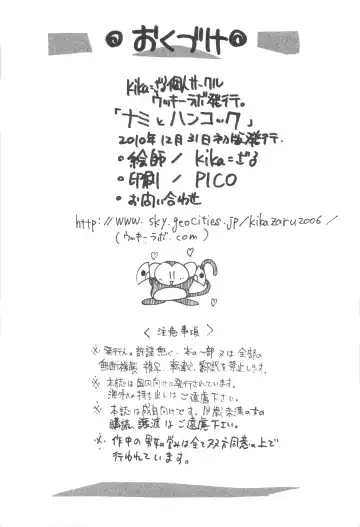 おくづけ
kika=ざる個人サークル
ウッキーラボ発行。
「ナミとハンコック」
2010年12月31日初版発行.
・絵師 / kika=ざる
・印刷 / PICO
・お問い合わせ
http://www.sky.geocities.jp/kikazaru2006/
(ウッキーラボ.com)
〈 注意事項 〉
※ 発行人の許諾無く、本の一部又は全部の
無断複製、複写、転載、翻訳を禁止します。
※ 本誌は国内向けに発行されています。
海外への持ち出しはご遠慮下さい。
※ 本誌は成人向けです。18歳未満の方の
購読、譲渡はご遠慮下さい。
※ 作中の男女の営みは全て双方同意の上で
行われています。